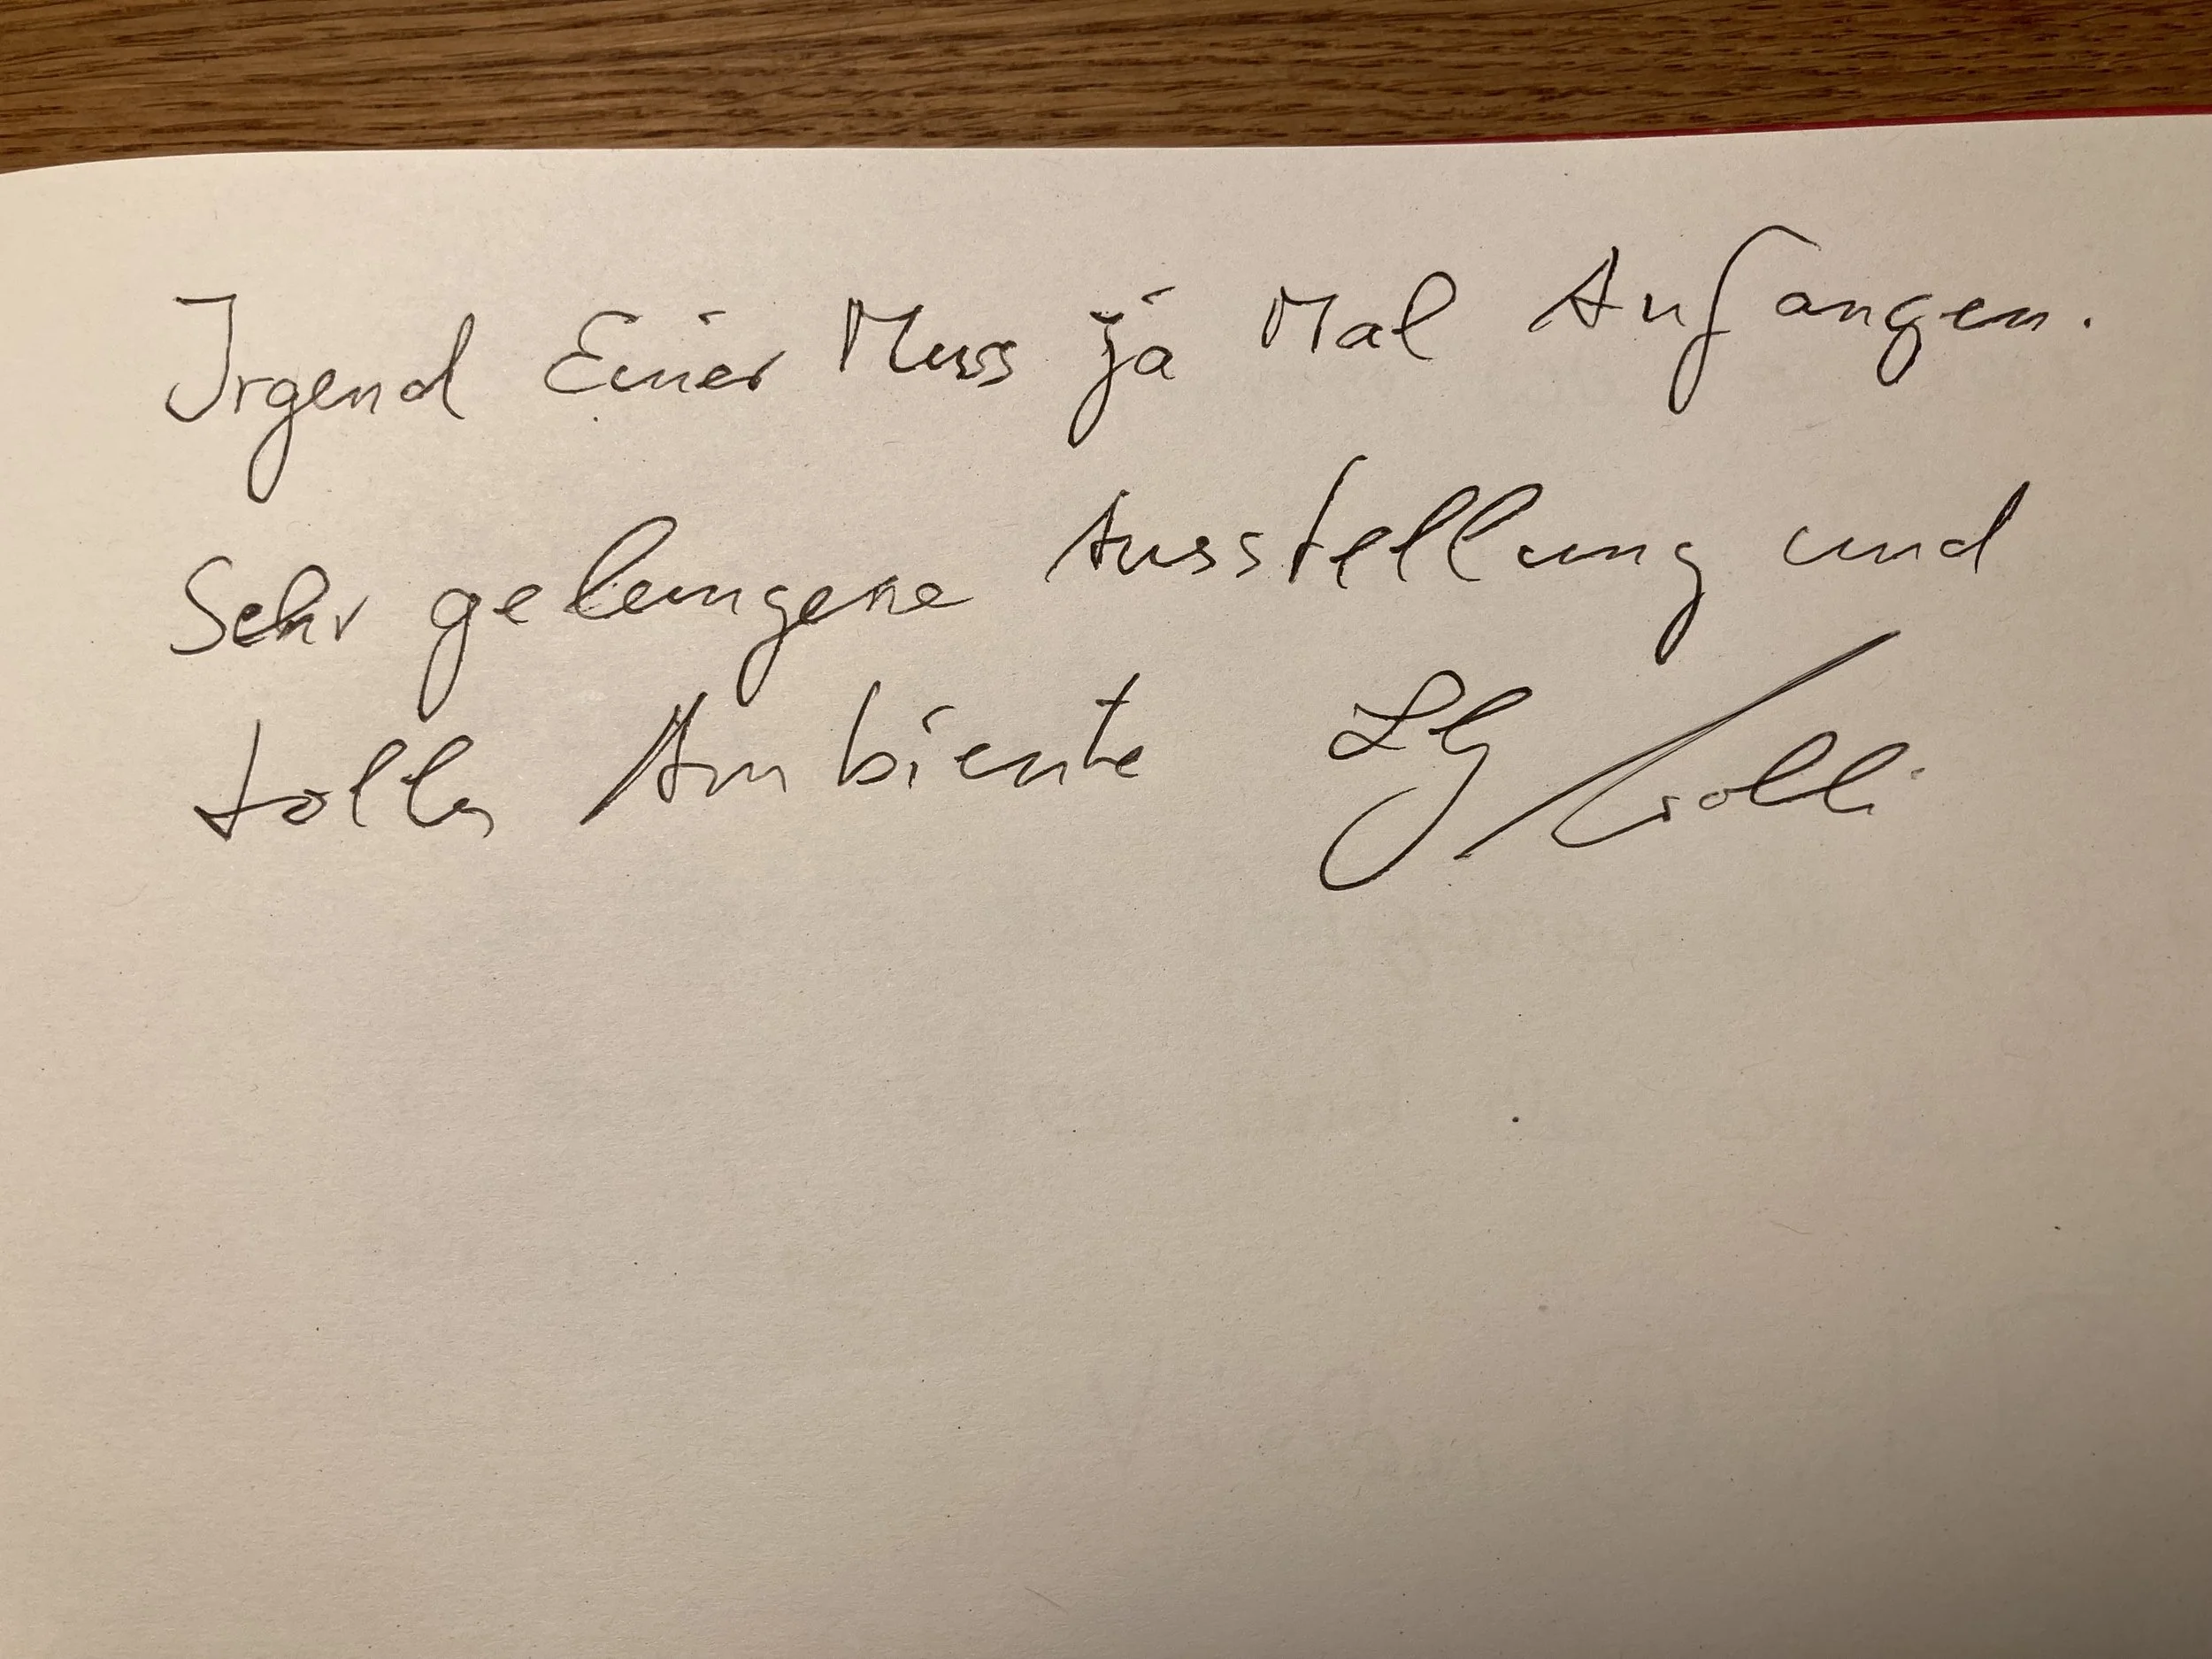 Irgend Einer Muss ja Mal Anfangen.
Sehr gelungene Ausstellung und
tolles Ambiente LG